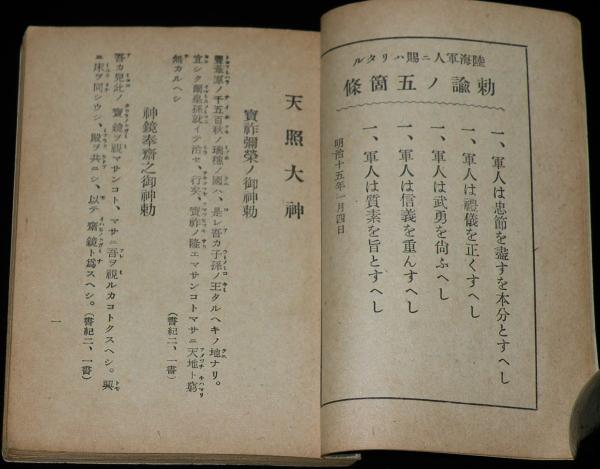 陸海軍人ニ賜ハリタル
勅諭ノ五箇條
一、軍人は忠節を盡すを本分とすへし
一、軍人は禮儀を正くすへし
一、軍人は武勇を尙ふへし
一、軍人は信義を重んすへし
一、軍人は質素を旨とすへし
明治十五年一月四日
天照大神
寶祚彌榮ノ御神勅
豐葦原ノ千五百秋ノ瑞穗ノ國ハ、是レ吾カ子孫ノ王タルヘキノ地ナリ。
宜シク爾皇孫就イテ治セ、行矣、寶祚ノ隆エマサンコトマサニ天地ト窮
無カルヘシ
(書紀二、一書)
神鏡奉齋之御神勅
吾カ兒此ノ寶鏡ヲ視マサンコト、マサニ吾ヲ視ルカコトクスヘシ。與
ニ床ヲ同シウシ、殿ヲ共ニシ、以テ齋鏡ト爲スヘシ。(書紀二、一書)
一